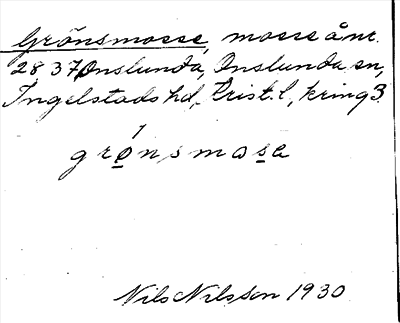 Grönsmosse, mosse å nr.
28 37 Onslunda, Onslunda sn,
Ingelstads hd, Krist. l, kring 3
grǫnsmosa
Nils Nilsson 1930